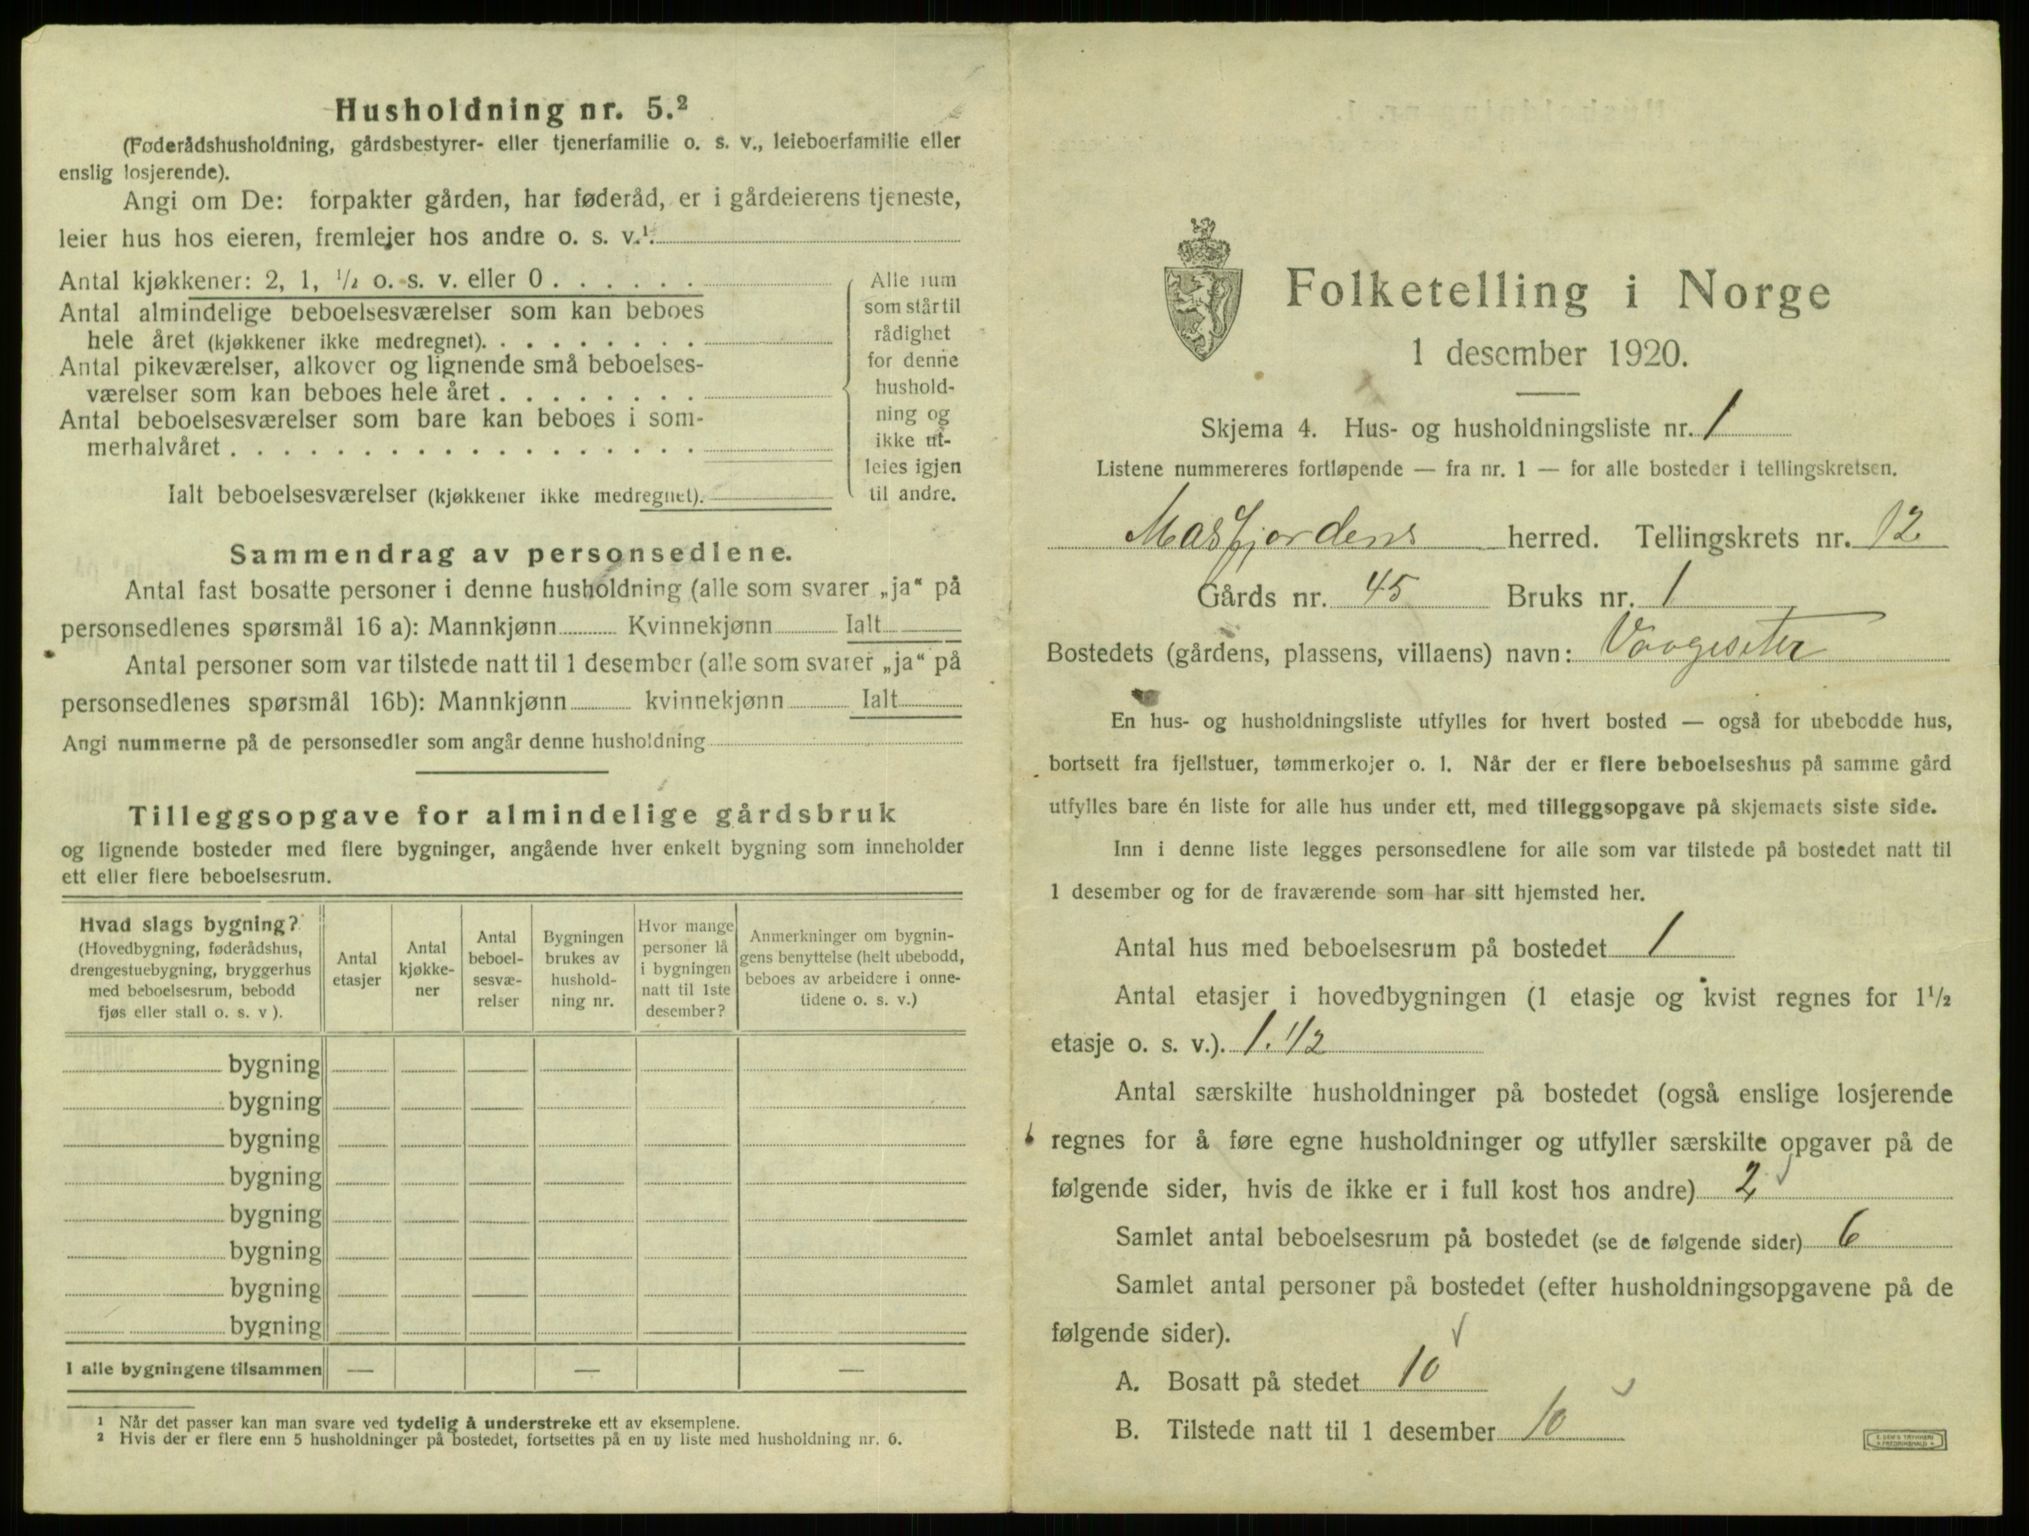 Husholdning nr. 5.²
(Føderådshusholdning, gårdsbestyrer- eller tjenerfamilie o. s. v., leieboerfamilie eller
enslig losjerende).
Angi om De: forpakter gården, har føderåd, er i gårdeierens tjeneste,
leier hus hos eieren, fremlejer hos andre o. s. v.¹.
Antal kjøkkener: 2, 1, ½ o. s. v. eller 0 . . . . . .
Antal almindelige beboelsesværelser som kan beboes
hele året (kjøkkener ikke medregnet). . . . . . . . .
Antal pikeværelser, alkover og lignende små beboelses-
værelser som kan beboes hele året . . . . . . . .
Antal beboelsesværelser som bare kan beboes i som-
merhalvåret . . . . . . . . . . . . . . . . . .
Ialt beboelsesværelser (kjøkkener ikke medregnet).
Alle rum
som står til
rådighet
for denne
hushold-
ning og
ikke ut-
leies igjen
til andre.
Sammendrag av personsedlene.
Antal fast bosatte personer i denne husholdning (alle som svarer „ja“ på
personsedlenes spørsmål 16 a): Mannkjønn Kvinnekjønn Ialt
Antal personer som var tilstede natt til 1 desember (alle som svarer „ja“ på
personsedlenes spørsmål 16b): Mannkjønn kvinnekjønn Ialt
Angi nummerne på de personsedler som angår denne husholdning
Tilleggsopgave for almindelige gårdsbruk
og lignende bosteder med flere bygninger, angående hver enkelt bygning som inneholder
ett eller flere beboelsesrum.
Hvad slags bygning?
(Hovedbygning, føderådshus,
drengestuebygning, bryggerhus
med beboelsesrum, bebodd
fjøs eller stall o. s. v ).
Antal
etasjer
Antal
kjøkke-
ner
Antal
beboel-
sesvæ-
relser
Bygningen
brukes av
hushold-
ning nr.
Hvor mange
personer lå
i bygningen
natt til 1ste
desember?
Anmerkninger om bygnin-
gens benyttelse (helt ubebodd,
beboes av arbeidere i onne-
tidene o. s. v.)
bygning
bygning
bygning
bygning
bygning
bygning
bygning
bygning
I alle bygningene tilsammen — — —
¹ Når det passer kan man svare ved tydelig å understreke ett av eksemplene.
² Hvis der er flere enn 5 husholdninger på bostedet, fortsettes på en ny liste med husholdning nr. 6.
Folketelling i Norge
1 desember 1920.
Skjema 4. Hus- og husholdningsliste nr. 1
Listene nummereres fortløpende — fra nr. 1 — for alle bosteder i tellingskretsen.
Masfjordens herred. Tellingskrets nr. 12
Gårds nr. 45 Bruks nr. 1
Bostedets (gårdens, plassens, villaens) navn: Vaageseter
En hus- og husholdningsliste utfylles for hvert bosted — også for ubebodde hus,
bortsett fra fjellstuer, tømmerkojer o. l. Når der er flere beboelseshus på samme gård
utfylles bare én liste for alle hus under ett, med tilleggsopgave på skjemaets siste side.
Inn i denne liste legges personsedlene for alle som var tilstede på bostedet natt til
1 desember og for de fraværende som har sitt hjemsted her.
Antal hus med beboelsesrum på bostedet 1
Antal etasjer i hovedbygningen (1 etasje og kvist regnes for 1½
etasje o. s. v.). 1.1/2
Antal særskilte husholdninger på bostedet (også enslige losjerende
regnes for å føre egne husholdninger og utfyller særskilte opgaver på de
følgende sider, hvis de ikke er i full kost hos andre) 2
Samlet antal beboelsesrum på bostedet (se de følgende sider) 6
Samlet antal personer på bostedet (efter husholdningsopgavene på de
følgende sider).
A. Bosatt på stedet 10
B. Tilstede natt til 1 desember 10